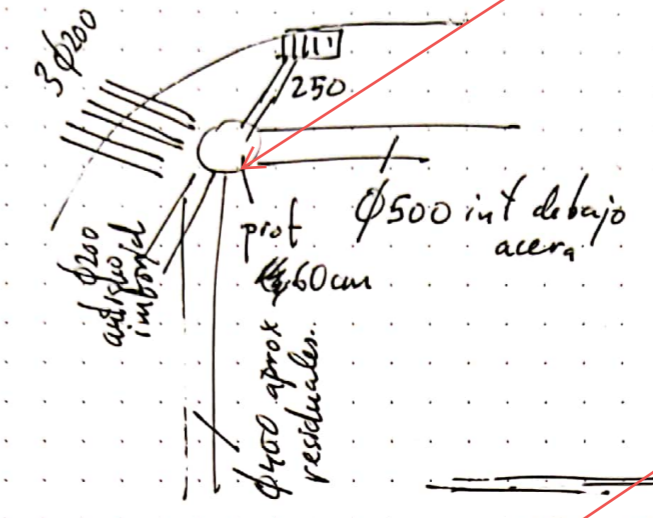 3 ϕ200
250
ϕ500 int debajo
acera
prof
60cm
ϕ200
antiguo
imbornal
ϕ400 aprox
residuales.